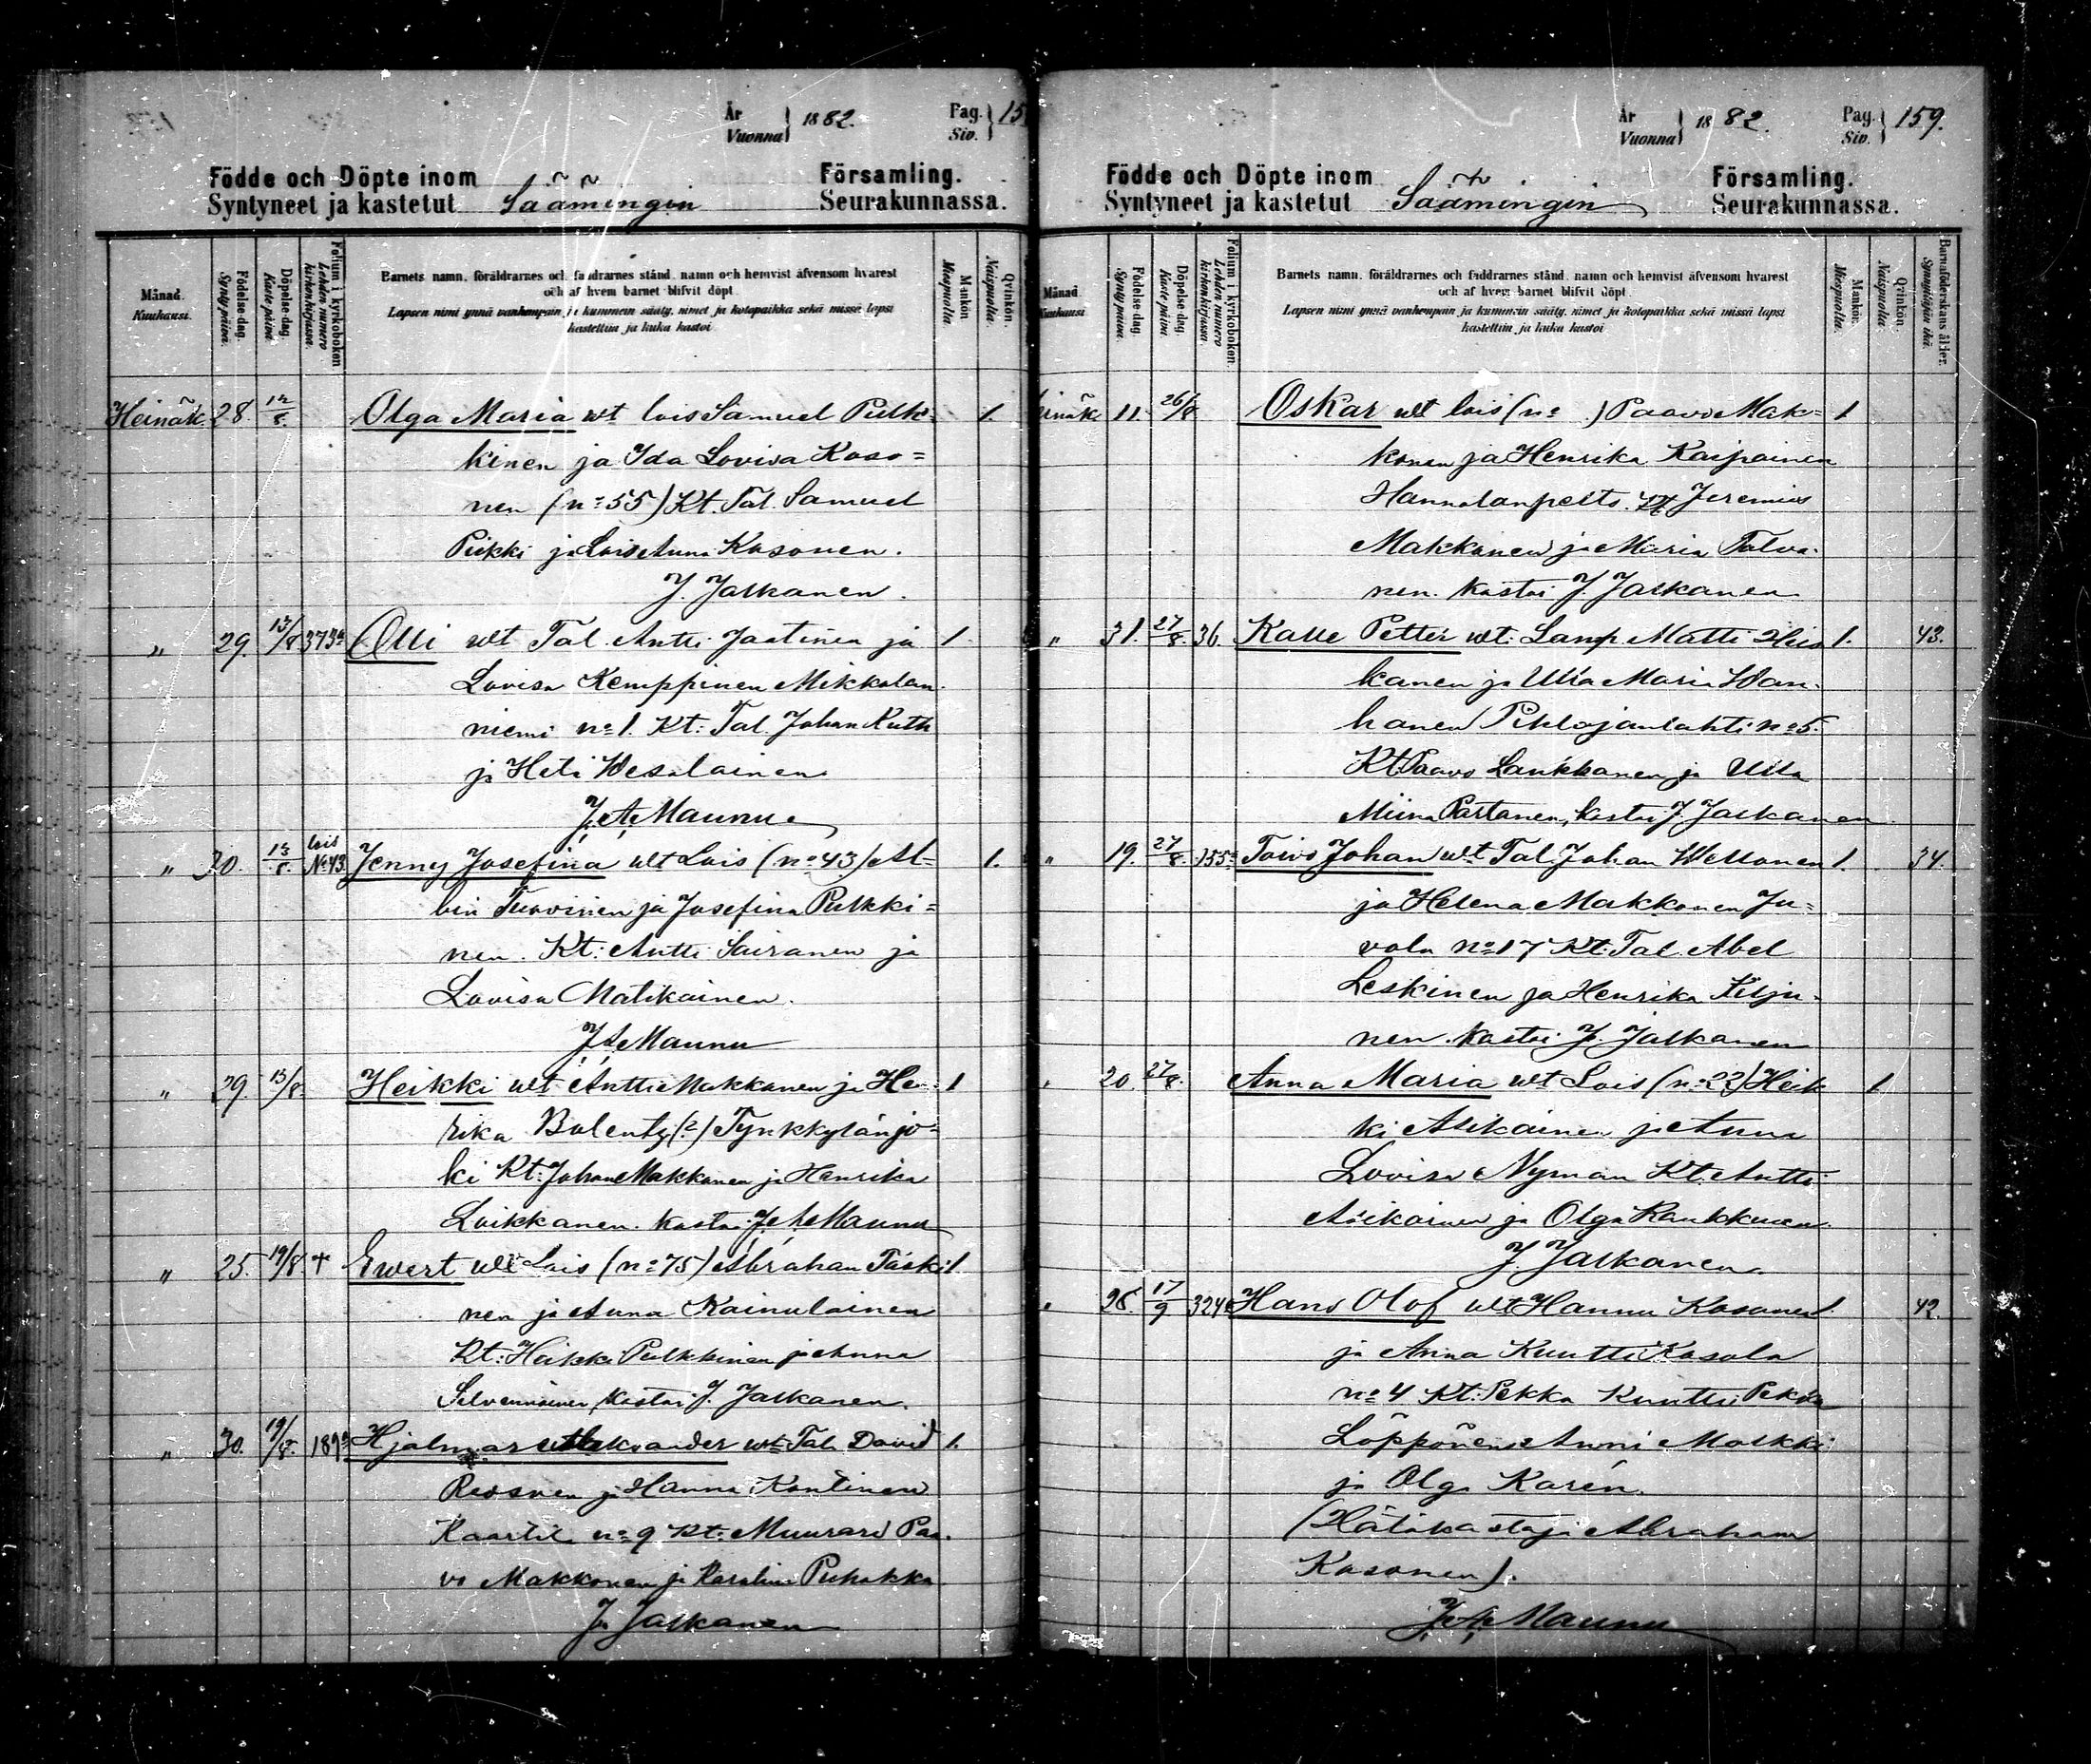 År
Vuonna } 1882.
Pag.
Siv. } 15
Födde och Döpte inom
Syntyneet ja kastetut
Säämingin
Församling.
Seurakunnassa.
Månad.
Kuukausi.
Födelse-dag.
Synty päivä.
Döpelse-dag.
Kaste päivä
Folium i kyrkoboken
Lehden numero
kirkonkirjassa.
Barnets namn, föräldrarnes och faddrarnes stånd, namn och hemvist äfvensom hvarest
och af hvem barnet blifvit döpt
Lapsen nimi ynnä vanhempain ja kummein sääty, nimet ja kotopaikka sekä missä lapsi
kastettiin ja kuka kastoi
Mankön
Miespuolia
Qvinkön.
Naispuolia.
Heinäk. 28. 12/8. Olga Maria wt lois Samuel Pulk- 1.
kinen ja Ida Lovisa Koso=
nen (no 55) Kt. Tal. Samuel
Pirkki ja Lois Anna Kosonen.
J. Jalkanen.
„ 29. 13/8 373a Olli wt Tal. Antti Jaatinen ja 1
Lovisa Kemppinen Mikkolan
niemi no 1. Kt: Tal. Johan Ruth
ja Heti Wesalainen
J. A. Maunu
„ 30. 13/8. lois No 43 Jenny Josefina wt Lois (no 43) Al- 1.
bin Turvinen ja Josefina Pulkki=
nen. Kt: Antti Sairanen ja
Lovisa Matikainen.
J. A. Maunu
„ 29. 13/8. Heikki wt Antti Makkonen ja He- 1
rika Bulentz (?) Tynkkylänjo-
ki Kt: Johan Makkonen ja Henrika
Loikkanen. kastoi J. A. Maunu
„ 25. 19/8. + Ewert wt Lois (no 75) Abraham Täski 1.
nen ja Anna Kainulainen
Kt: Heikki Pulkkinen ja Anna
Silvennoinen, kastoi J. Jalkanen.
„ 30. 19/8. 189a Hjalmar Aleksander wt Tal. David 1.
Reosnen ja Hanna Kontinen
Kaartil. no 9 Kt: Muurari Paa-
vo Makkonen ja Karolina Puhakka
J. Jalkanen
År
Vuonna } 1882.
Pag.
Siv. } 159.
Födde och Döpte inom
Syntyneet ja kastetut
Säämingin
Församling.
Seurakunnassa.
Månad
Kuukausi
Födelse-dag.
Synty päivä.
Döpelse-dag.
Kaste päivä.
Folium i kyrkoboken.
Lehden numero
kirkonkirjassa.
Barnets namn, föräldrarnes och faddrarnes stånd, namn och hemvist äfvensom hvarest
och af hvem barnet blifvit döpt
Lapsen nimi ynnä vanhempain ja kummein sääty, nimet ja kotopaikka sekä missä lapsi
kastettiin ja kuka kastoi
Mankön.
Miespuolia.
Qvinkön.
Naispuolia.
Barnaföderskans ålder.
Synnyttäjän ikä.
einäk. 11. 26/8 Oskar wt lois (no ) Paavo Mak= 1
konen ja Henrika Kaipainen
Hannolanpelto. Kt Jeremias
Makkonen ja Maria Talva-
nen. kastoi J. Jalkanen
„ 31. 27/8. 36. Kalle Petter wt: Lamp. Matti Heis 1. 43.
kanen ja Ulla Maria Wan-
hanen Pihlajanlahti no 5.
Kt: Paavo Laukkanen ja Ulla
Miina Partanen, kastoi J. Jalkanen
„ 19. 27/8. 155a Toivo Johan wt Tal. Johan Wellonen 1. 34.
ja Helena Makkonen Ju=
vola no 17 Kt: Tal. Abel
Leskinen ja Henrika Silju-
nen. kastoi J. Jalkanen
„ 20. 27/8. Anna Maria wt Lois (no 22) Heik 1.
ki Asikainen ja Anna
Lovisa Nyman Kt. Antti
Asikainen ja Olga Raukkunen.
J. Jalkanen.
„ 28. 17/9 324 Hans Olof wt Hannu Kosonen 1. 42.
ja Anna Kuutti Kosola
no 4 Kt: Pekka Kuutti, Pekka
Löppönen Anni Malkki
ja Olga Karén.
(Hätäkastaja Abraham
Kosonen).
J. A. Maunu